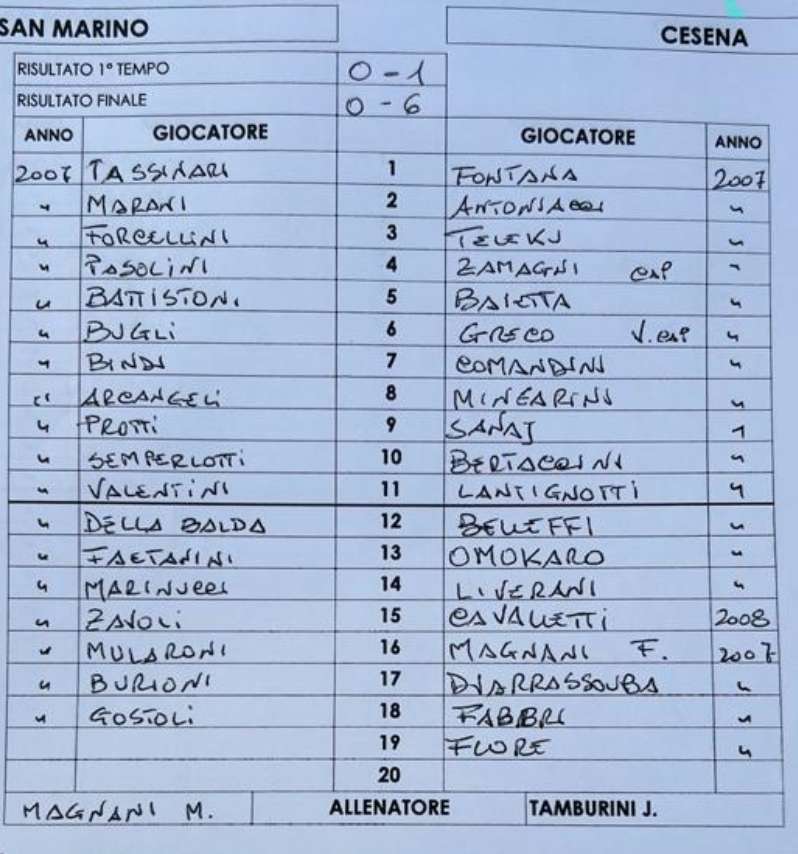 SAN MARINO CESENA
RISULTATO 1° TEMPO 0 - 1
RISULTATO FINALE 0 - 6
ANNO GIOCATORE GIOCATORE ANNO
2007 TASSINARI 1 FONTANA 2007
" MARANI 2 ANTONIACCI "
" FORCELLINI 3 TELEKU "
" PASOLINI 4 ZAMAGNI CAP "
" BATTISTONI 5 BAIETTA "
" BUGLI 6 GRECO V.CAP "
" BINDI 7 COMANDINI "
" ARCANGELI 8 MINGARINI "
" PROTTI 9 SANAJ "
" SEMPERLOTTI 10 BERTACCINI "
" VALENTINI 11 LANTIGNOTTI "
" DELLA BALDA 12 BELLEFFI "
" FAETANINI 13 OMOKARO "
" MARINUCCI 14 LIVERANI "
" ZAVOLI 15 CAVALLETTI 2008
" MULARONI 16 MAGNANI F. 2007
" BURIONI 17 DIARRASSOUBA "
" GOSTOLI 18 FABBRI "
19 FIORE "
20
MAGNANI M. ALLENATORE TAMBURINI J.